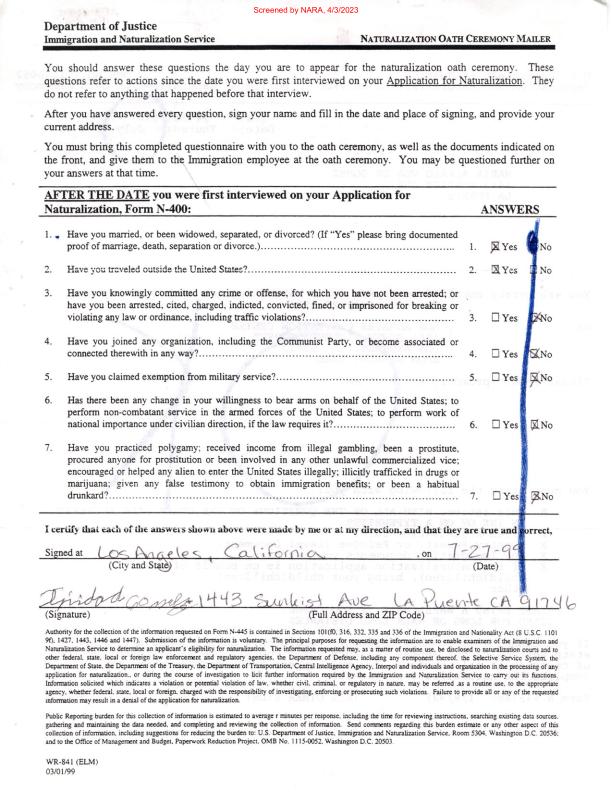 Screened by NARA, 4/3/2023
Department of Justice
Immigration and Naturalization Service NATURALIZATION OATH CEREMONY MAILER
You should answer these questions the day you are to appear for the naturalization oath ceremony. These
questions refer to actions since the date you were first interviewed on your Application for Naturalization. They
do not refer to anything that happened before that interview.
After you have answered every question, sign your name and fill in the date and place of signing, and provide your
current address.
You must bring this completed questionnaire with you to the oath ceremony, as well as the documents indicated on
the front, and give them to the Immigration employee at the oath ceremony. You may be questioned further on
your answers at that time.
AFTER THE DATE you were first interviewed on your Application for
Naturalization, Form N-400: ANSWERS
1. Have you married, or been widowed, separated, or divorced? (If "Yes" please bring documented
proof of marriage, death, separation or divorce.)........ 1. ☒ Yes No
2. Have you traveled outside the United States?........ 2. ☒ Yes ☐ No
3. Have you knowingly committed any crime or offense, for which you have not been arrested; or
have you been arrested, cited, charged, indicted, convicted, fined, or imprisoned for breaking or
violating any law or ordinance, including traffic violations?........ 3. ☐ Yes ☒ No
4. Have you joined any organization, including the Communist Party, or become associated or
connected therewith in any way?........ 4. ☐ Yes ☒ No
5. Have you claimed exemption from military service?........ 5. ☐ Yes ☒ No
6. Has there been any change in your willingness to bear arms on behalf of the United States; to
perform non-combatant service in the armed forces of the United States; to perform work of
national importance under civilian direction, if the law requires it?........ 6. ☐ Yes ☒ No
7. Have you practiced polygamy; received income from illegal gambling, been a prostitute,
procured anyone for prostitution or been involved in any other unlawful commercialized vice;
encouraged or helped any alien to enter the United States illegally; illicitly trafficked in drugs or
marijuana; given any false testimony to obtain immigration benefits; or been a habitual
drunkard?........ 7. ☐ Yes ☒ No
I certify that each of the answers shown above were made by me or at my direction, and that they are true and correct,
Signed at Los Angeles, California , on 7-27-99
(City and State) (Date)
Trinidad Gomez 1443 Sunkist Ave LA Puente CA 91746
(Signature) (Full Address and ZIP Code)
Authority for the collection of the information requested on Form N-445 is contained in Sections 101(f0, 316, 332, 335 and 336 of the Immigration and Nationality Act (8 U.S.C. 1101
9f), 1427, 1443, 1446 and 1447). Submission of the information is voluntary. The principal purposes for requesting the information are to enable examiners of the Immigration and
Naturalization Service to determine an applicant's eligibility for naturalization. The information requested may, as a matter of routine use, be disclosed to naturalization courts and to
other federal, state, local or foreign law enforcement and regulatory agencies, the Department of Defense, including any component thereof, the Selective Service System, the
Department of State, the Department of the Treasury, the Department of Transportation, Central Intelligence Agency, Interpol and individuals and organization in the processing of any
application for naturalization., or during the course of investigation to licit further information required by the Immigration and Naturalization Service to carry out its functions.
Information solicited which indicates a violation or potential violation of law, whether civil, criminal, or regulatory in nature, may be referred .as a routine use, to the appropriate
agency, whether federal, state, local or foreign, charged with the responsibility of investigating, enforcing or prosecuting such violations. Failure to provide all or any of the requested
information may result in a denial of the application for naturalization.
Public Reporting burden for this collection of information is estimated to average r minutes per response, including the time for reviewing instructions, searching existing data sources,
gathering and maintaining the data needed, and completing and reviewing the collection of information. Send comments regarding this burden estimate or any other aspect of this
collection of information, including suggestions for reducing the burden to: U.S. Department of Justice, Immigration and Naturalization Service, Room 5304, Washington D.C. 20536;
and to the Office of Management and Budget, Paperwork Reduction Project, OMB No. 1115-0052, Washington D.C. 20503.
WR-841 (ELM)
03/01/99